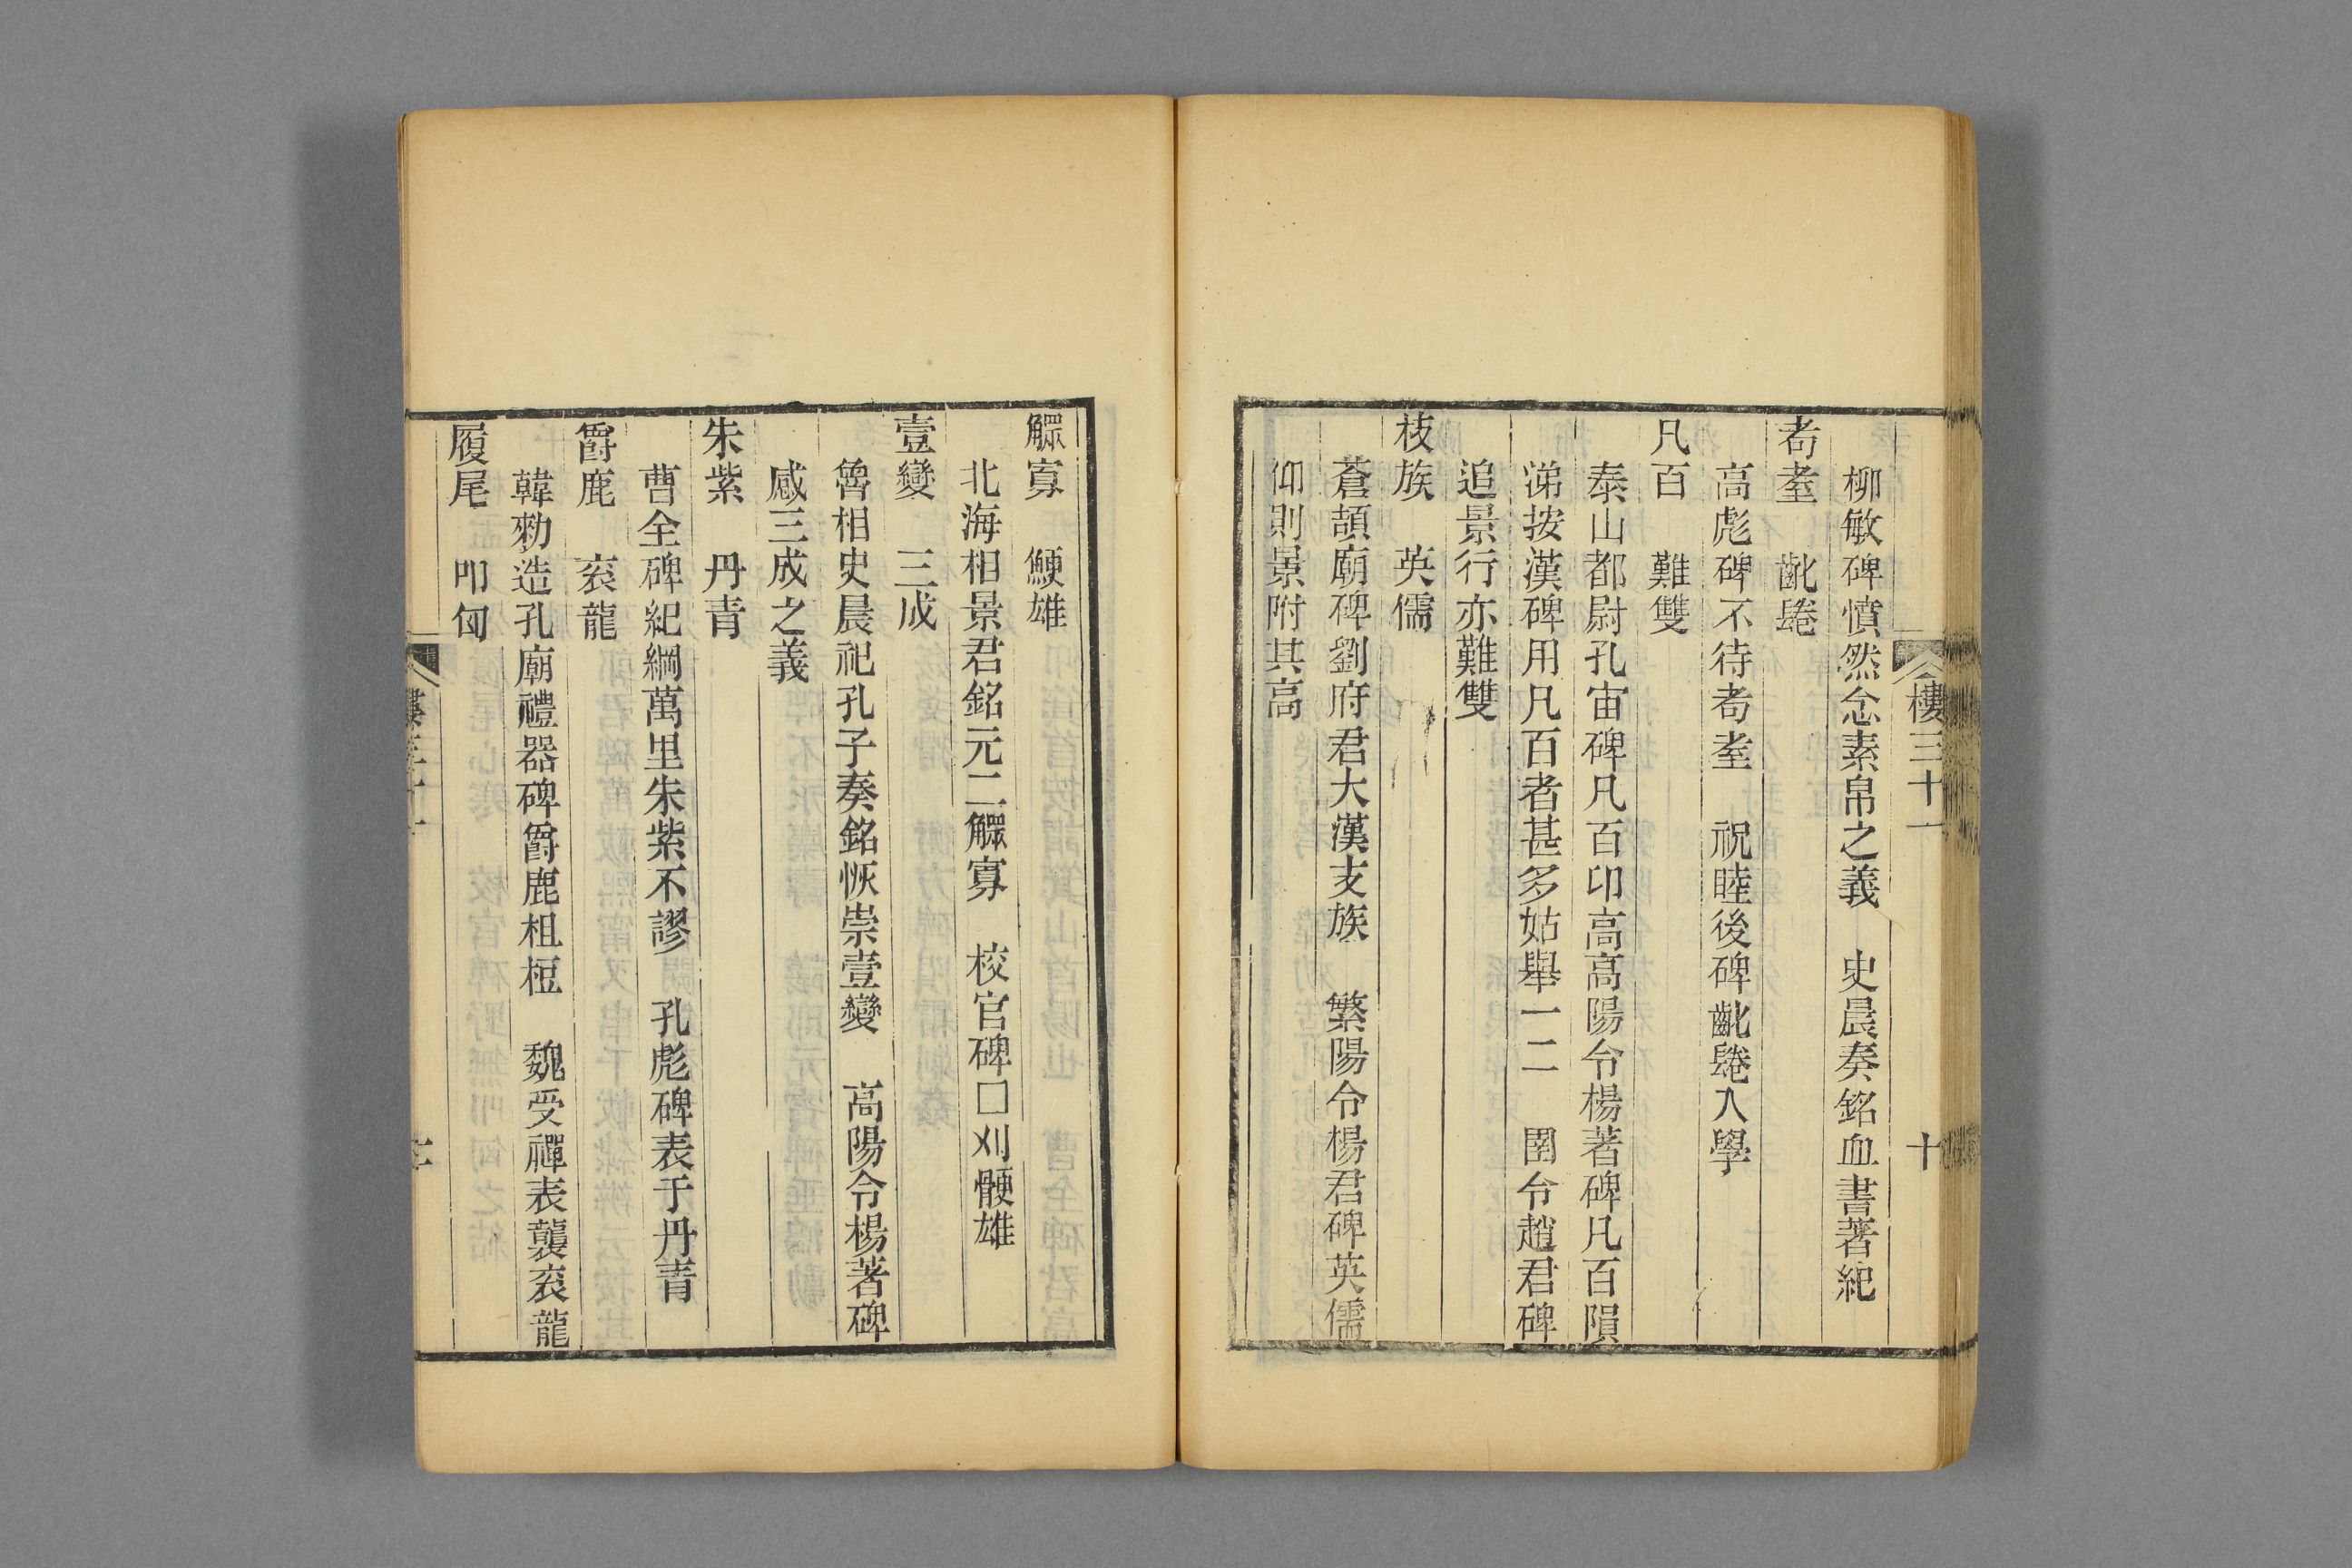 樓三十一 十
柳敏碑憤然念素帛之義 史晨奏銘血書著紀
耇耋 齔髫
高彪碑不待耇耋 祝睦後碑齔髫入學
凡百 難雙
泰山都尉孔宙碑凡百卬高高陽令楊著碑凡百隕
涕按漢碑用凡百者甚多姑舉一二 圉令趙君碑
追景行亦難雙
枝族 英儒
蒼頡廟碑劉府君大漢支族 繁陽令楊君碑英儒
仰則景附其高
鰥寡 鯁雄
北海相景君銘元二鰥寡 校官碑□刈骾雄
壹變 三成
魯相史晨祀孔子奏銘恢崇壹變 高陽令楊著碑
感三成之義
朱紫 丹青
曹全碑紀綱萬里朱紫不謬 孔彪碑表于丹青
爵鹿 衮龍
韓勑造孔廟禮器碑爵鹿柤梪 魏受禪表襲衮龍
履尾 叩匈